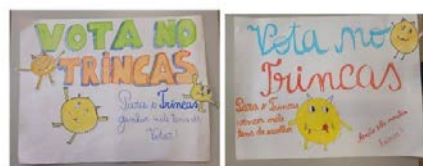 VOTA NO
TRINCAS
Para o Trincas
ganhar nele tens de
Votar!
Vota no
Trincas
Para o Trincas
vencer nele
tens de escolher